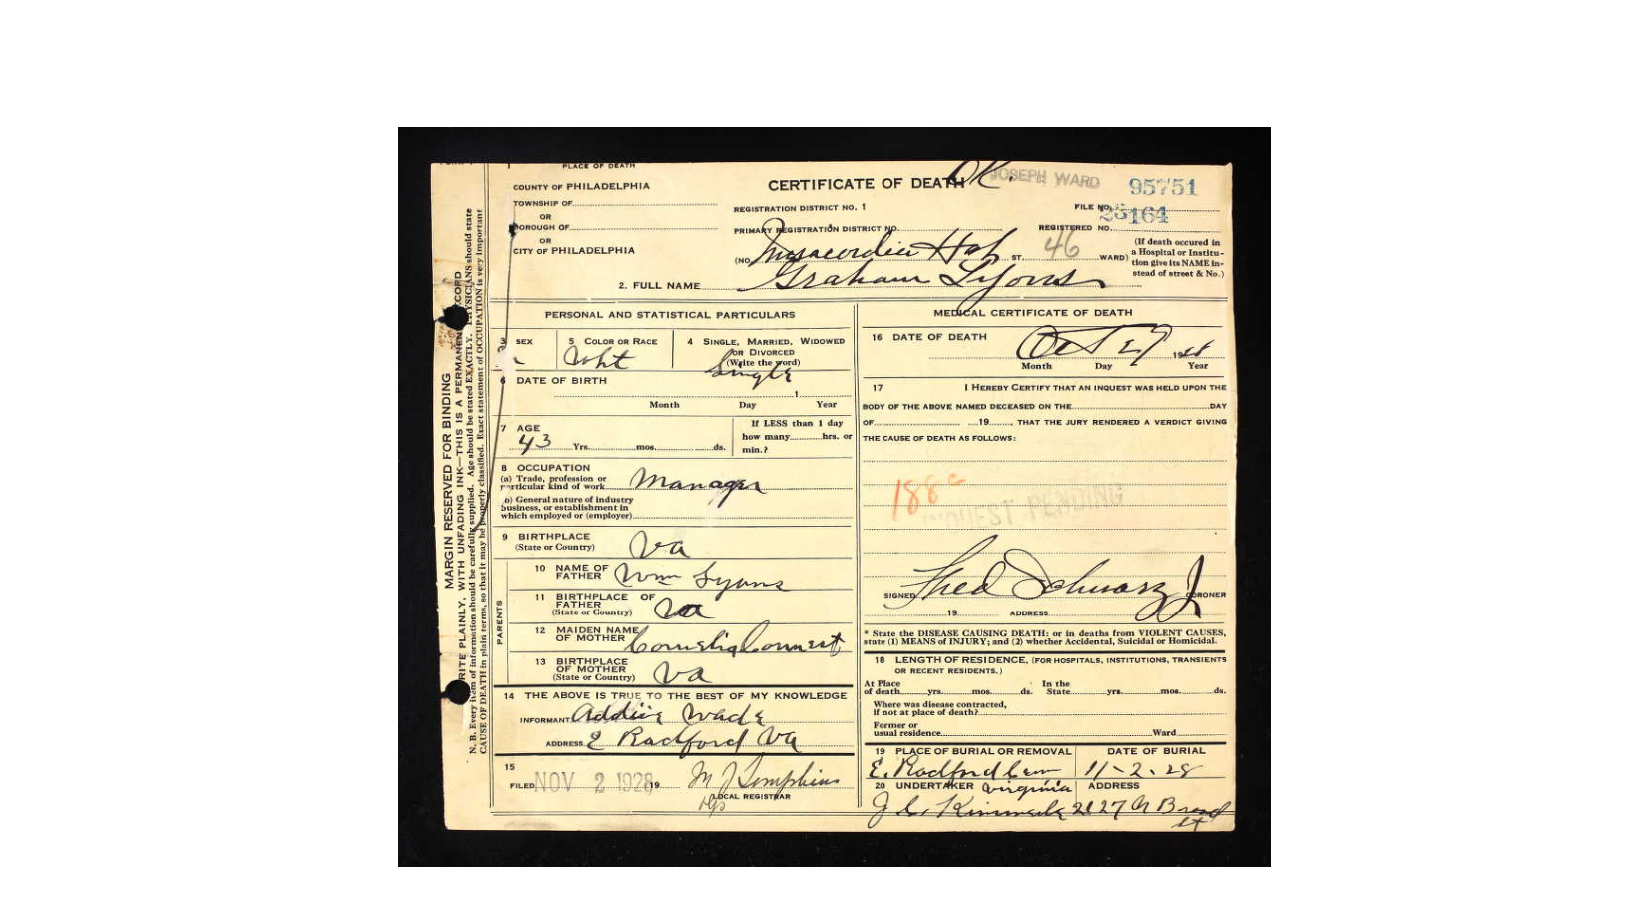 PLACE OF DEATH
COUNTY OF PHILADELPHIA
TOWNSHIP OF
OR
BOROUGH OF
OR
CITY OF PHILADELPHIA
CERTIFICATE OF DEATH
OK.
JOSEPH WARD
95751
REGISTRATION DISTRICT NO. 1
FILE NO.
PRIMARY REGISTRATION DISTRICT NO.
REGISTERED NO.
(NO. Hosp ST. 46 WARD)
(If death occured in
a Hospital or Institu-
tion give its NAME in-
stead of street & No.)
2. FULL NAME Graham Lyons
PERSONAL AND STATISTICAL PARTICULARS
3 SEX
5 COLOR OR RACE
Wht
4 SINGLE, MARRIED, WIDOWED
OR DIVORCED
(Write the word)
Single
6 DATE OF BIRTH
1
Month Day Year
7 AGE
43 Yrs. mos. ds.
If LESS than 1 day
how many hrs. or
min.?
8 OCCUPATION
(a) Trade, profession or
particular kind of work Manager
(b) General nature of industry
business, or establishment in
which employed or (employer)
9 BIRTHPLACE
(State or Country) Va
PARENTS
10 NAME OF
FATHER Wm Lyons
11 BIRTHPLACE OF
FATHER
(State or Country) Va
12 MAIDEN NAME
OF MOTHER
13 BIRTHPLACE
OF MOTHER
(State or Country) Va
14 THE ABOVE IS TRUE TO THE BEST OF MY KNOWLEDGE
INFORMANT Addie Wade
ADDRESS E Radford Va
15
FILED NOV 2 1928 19 M J Tompkins
LOCAL REGISTRAR
MEDICAL CERTIFICATE OF DEATH
16 DATE OF DEATH
Oct 27 1928
Month Day Year
17 I HEREBY CERTIFY THAT AN INQUEST WAS HELD UPON THE
BODY OF THE ABOVE NAMED DECEASED ON THE DAY
OF 19 , THAT THE JURY RENDERED A VERDICT GIVING
THE CAUSE OF DEATH AS FOLLOWS:
188c
INQUEST PENDING
SIGNED Fred Schwarz Jr CORONER
19 ADDRESS
* State the DISEASE CAUSING DEATH: or in deaths from VIOLENT CAUSES,
state (1) MEANS of INJURY; and (2) whether Accidental, Suicidal or Homicidal.
18 LENGTH OF RESIDENCE, (FOR HOSPITALS, INSTITUTIONS, TRANSIENTS
OR RECENT RESIDENTS.)
At Place
of death yrs. mos. ds.
In the
State yrs. mos. ds.
Where was disease contracted,
if not at place of death?
Former or
usual residence Ward
19 PLACE OF BURIAL OR REMOVAL
E. Radford Cem
Virginia
DATE OF BURIAL
11-2-28
20 UNDERTAKER
ADDRESS
2127 N Broad
st
MARGIN RESERVED FOR BINDING
WRITE PLAINLY, WITH UNFADING INK—THIS IS A PERMANENT RECORD
N. B. Every item of information should be carefully supplied. Age should be stated EXACTLY. PHYSICIANS should state
CAUSE OF DEATH in plain terms, so that it may be properly classified. Exact statement of OCCUPATION is very important